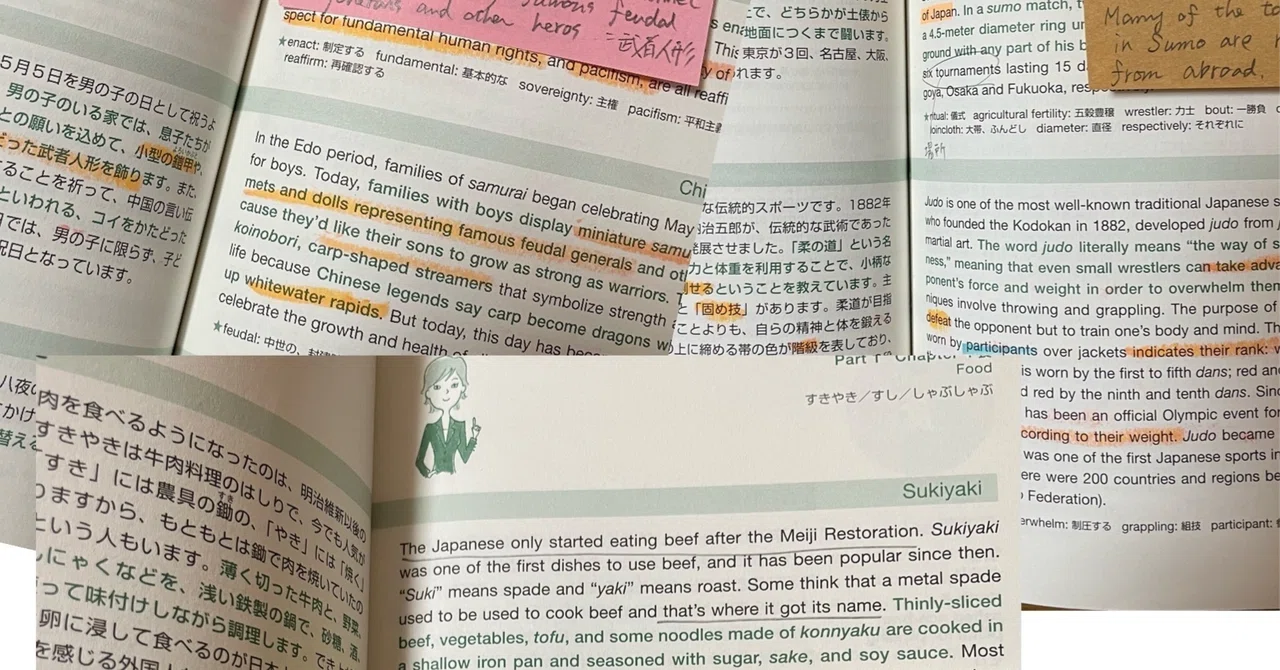 5月5日を男の子の日として祝うよ
男の子のいる家では、息子たちが
との願いを込めて、小型の鎧甲や、
だった武者人形を飾ります。また、
することを祈って、中国の言い伝
といわれる、コイをかたどった
日では、男の子に限らず、子ど
祝日となっています。
feudal
and other heros
武者人形
spect for fundamental human rights, and pacifism, are all reaffi
★enact: 制定する fundamental: 基本的な sovereignty: 主権 pacifism: 平和主義
reaffirm: 再確認する
Chi
In the Edo period, families of samurai began celebrating May
for boys. Today, families with boys display miniature samu
mets and dolls representing famous feudal generals and ot
cause they'd like their sons to grow as strong as warriors. T
koinobori, carp-shaped streamers that symbolize strength
life because Chinese legends say carp become dragons w
up whitewater rapids. But today, this day has bec
celebrate the growth and health of
★feudal: 中世の、封建
で、どちらかが土俵から
地面につくまで闘います。
東京が3回、名古屋、大阪、
れます。
s en
This
y of
な伝統的スポーツです。1882年
治五郎が、伝統的な武術であった
発展させました。「柔の道」という名
力と体重を利用することで、小柄な
せるということを教えています。主
と「固め技」があります。柔道が目指
ことよりも、自らの精神と体を鍛える
上に締める帯の色が階級を表しており、
of Japan. In a sumo match, t
a 4.5-meter diameter ring u
ground with any part of his b
six tournaments lasting 15 d
goya, Osaka and Fukuoka, resp
Many of the to
in Sumo are
from abroad.
★ritual: 儀式 agricultural fertility: 五穀豊穣 wrestler: 力士 bout: 一勝負
loincloth: 大帯、ふんどし diameter: 直径 respectively: それぞれに
場所
Judo is one of the most well-known traditional Japanese s
who founded the Kodokan in 1882, developed judo from
martial art. The word judo literally means "the way of s
ness," meaning that even small wrestlers can take adva
ponent's force and weight in order to overwhelm them
niques involve throwing and grappling. The purpose of
defeat the opponent but to train one's body and mind. Th
worn by participants over jackets indicates their rank: w
is worn by the first to fifth dans; red an
d red by the ninth and tenth dans. Sinc
has been an official Olympic event for
cording to their weight. Judo became
was one of the first Japanese sports in
ere were 200 countries and regions be
Federation).
erwhelm: 制圧する grappling: 組技 participant:
八夜
すかけ
替える
肉を食べるようになったのは、明治維新以後の
すきやきは牛肉料理のはしりで、今でも人気が
「すき」には農具の鋤の、「やき」には「焼く」
りますから、もともとは鋤で肉を焼いていたの
という人もいます。薄く切った牛肉と、野菜、
にゃくなどを、浅い鉄製の鍋で、砂糖、酒、
って味付けしながら調理します。でき上
卵に浸して食べるのが日本
を感じる外国
Part 1 Chapter
Food
すきやき／すし／しゃぶしゃぶ
Sukiyaki
The Japanese only started eating beef after the Meiji Restoration. Sukiyaki
was one of the first dishes to use beef, and it has been popular since then.
"Suki" means spade and "yaki" means roast. Some think that a metal spade
used to be used to cook beef and that's where it got its name. Thinly-sliced
beef, vegetables, tofu, and some noodles made of konnyaku are cooked in
a shallow iron pan and seasoned with sugar, sake, and soy sauce. Most